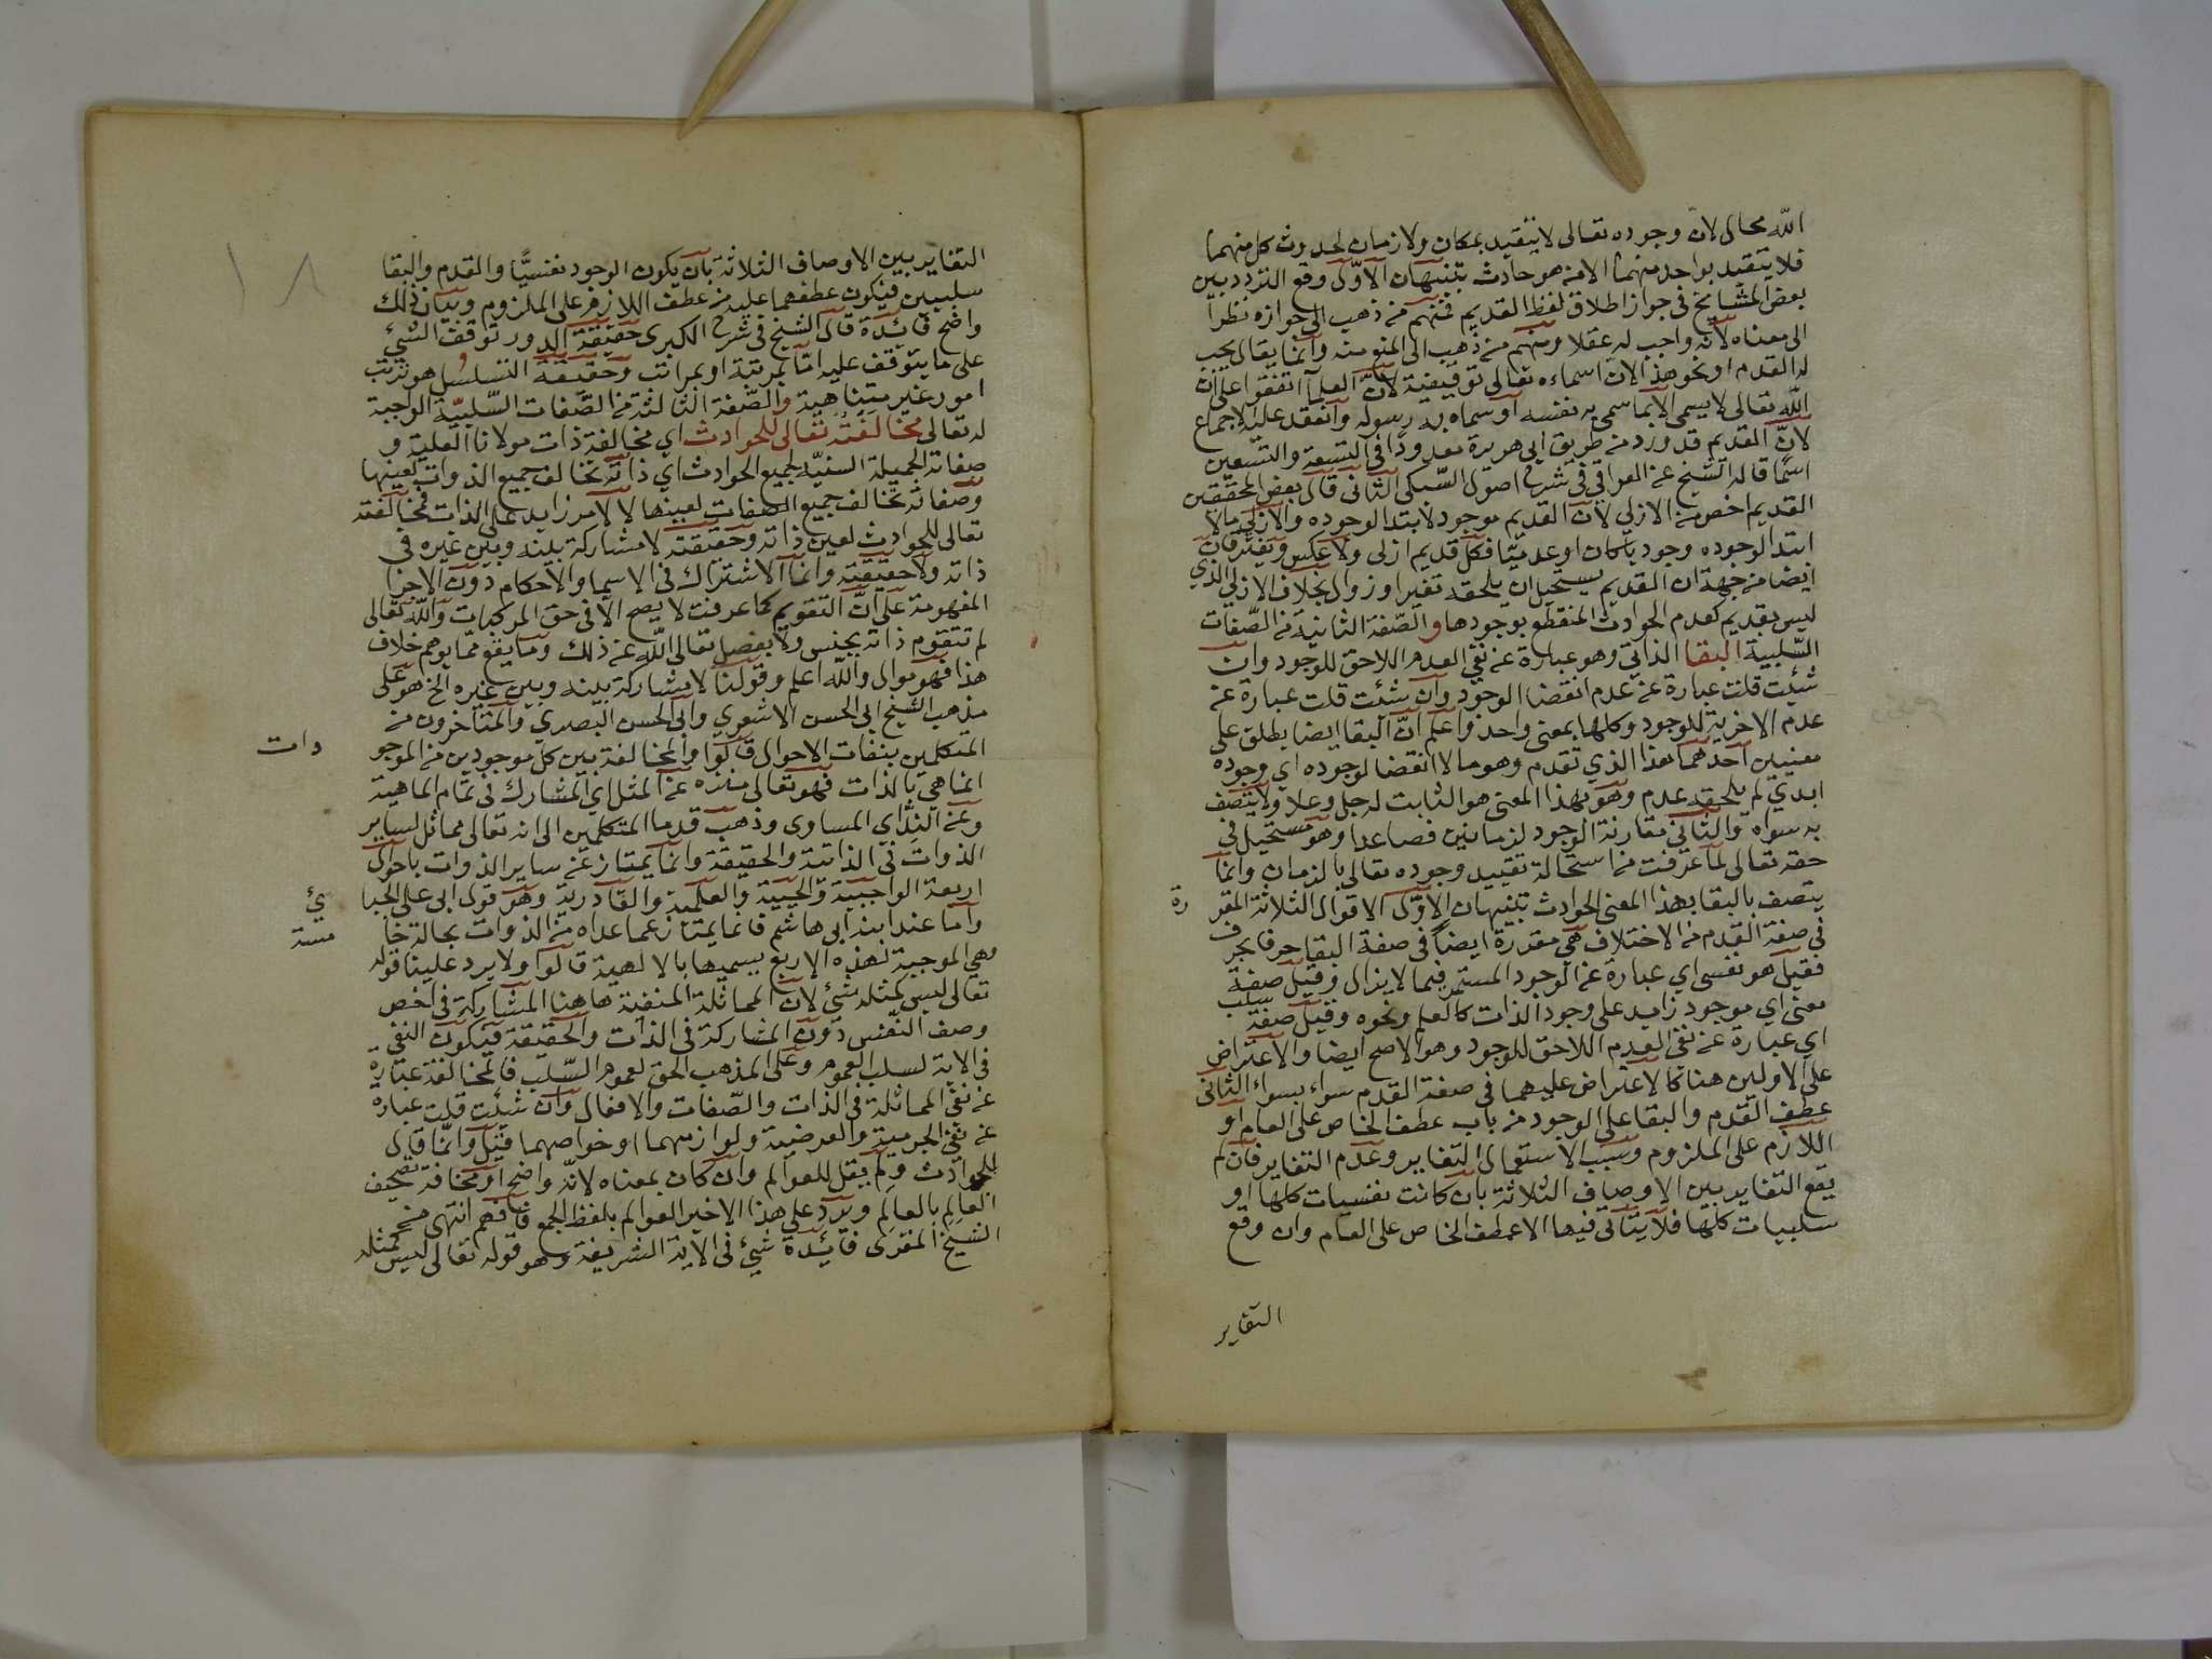 الله محال لان وجوده تعالى لا يتقيد بمكان ولا زمان لحدوث كل منهما
فلا يتقيد بواحد منهما الا من هو حادث تنبيهان الاوّل وقع التردد بين
بعض المشايخ في جواز اطلاق لفظ القديم فمنهم من ذهب الى جوازه نظرا
الى معناه لانه واجب له عقلا ومنهم من ذهب الى المنع منه وانما يقال يجب
له القدم او نحو هذا لان اسماءه تعالى توقيفية لانّ العلما اتفقوا على ان
الله تعالى لا يسمى الا بما سمى به نفسه او سماه به رسوله وانعقد عليه الاجماع
لانّ القديم قد ورد من طريق ابي هريرة معدودا في التسعة والتسعين
اسمًا قاله الشيخ عن العراقي في شرح اصول السبكي الثاني قال بعض المحققين
القديم اخص من الازلي لان القديم موجود لا ابتدا لوجوده والازلي ما لا
ابتدا لوجوده وجوديا كان او عدميّا فكل قديم ازلي ولا عكس ويفترقان
ايضا من جهة ان القديم يستحيل ان يلحقه تغير او زوال بخلاف الازلي الذي
ليس بقديم كعدم الحوادث المنقطع بوجودها والصّفة الثانية من الصّفات
السّلبية البقا الذاتي وهو عبارة عن نفي العدم اللاحق للوجود وان
شئت قلت عبارة عن عدم انقضا الوجود وان شئت قلت عبارة عن
عدم الاخرية للوجود وكلها بمعنى واحد واعلم انّ البقا ايضا يطلق على
معنيين احدهما هذا الذي تقدم وهو ما لا انقضا لوجوده اي وجوده
ابدي لم يلحقه عدم وهو بهذا المعنى هو الثابت له جل وعلا ولا يتصف
به سواه والثاني مقارنة الوجود لزمانين فصاعدا وهو مستحيل في
حقه تعالى لما عرفت من استحالة تقييد وجوده تعالى بالزمان وانما
يتصف بالبقا بهذا المعنى الحوادث تنبيهان الاوّل الاقوال الثلاثة المقر رة
في صفة القدم من الاختلاف هي مقدرة ايضاً في صفة البقا حرفا بحرف
فقيل هو نفسي اي عبارة عن الوجود المستمر فيما لا يزال وقيل صفة
معنى اي موجود زايد على وجود الذات كالعلم ونحوه وقيل صفة سلب
اي عبارة عن نفي العدم اللاحق للوجود وهو الاصح ايضا والاعتراض
على الاولين هنا كالاعتراض عليهما في صفة القدم سواء بسواء الثاني
عطف القدم والبقا على الوجود من باب عطف الخاص على العام او
اللازم على الملزوم وسبب الاستعمال التغاير وعدم التغاير فان لم
يقع التغاير بين الاوصاف الثلاثة بان كانت نفسيات كلها او
سلبيات كلها فلا يتاتى فيها الا عطف الخاص على العام وان وقع
التغاير
١٨
التغاير بين الاوصاف الثلاثة بان يكون الوجود نفسيًّا والقدم والبقا
سلبيين فيكون عطفهما عليه من عطف اللازم على الملزوم وبيان ذلك
واضح فائدة قال الشيخ في شرح الكبرى حقيقة الدور توقف الشئ
على ما يتوقف عليه امّا بمرتبة او بمراتب وحقيقة التسلسل هو ترتب
امور غير متناهية والصّفة الثالثة من الصّفات السّلبيّة الواجبة
له تعالى مخالفته تعالى للحوادث اي مخالفة ذات مولانا العلية و
صفاته الجميلة السنيّة لجميع الحوادث اي ذاته تخالف جميع الذوات لعينها
وصفاته تخالف جميع الصفات لعينها لا لامر زايد على الذات فمخالفته
تعالى للحوادث لعين ذاته وحقيقته لا مشاركة بينه وبين غيره في
ذاته ولا حقيقته وانما الاشتراك في الاسما والاحكام دون الاجزا
المفهومة على انّ التقويم كما عرفت لا يصح الا في حق المركبات والله تعالى
لم تتقوم ذاته بجنس ولا بفصل تعالى الله عن ذلك وما يقع مما يوهم خلاف
هذا فهو موال والله اعلم وقولنا لا مشاركة بينه وبين غيره الخ هو على
مذهب الشيخ ابي الحسن الاشعري وابي الحسن البصري والمتاخرون من
المتكلمين بنفات الاحوال قالوا والمخالفة بين كل موجودين من الموجو دات
انما هي بالذات فهو تعالى منزه عن المثل اي المشارك في تمام الماهية
وعن الند اي المساوى وذهب قدما المتكلمين الى انه تعالى مماثل لساير
الذوات في الذاتية والحقيقة وانما يمتاز عن ساير الذوات باحوال
اربعة الواجبية والحيية والعلمية والقادرية وهو قول ابي علي الجبا ئي
وامّا عند ابنه ابي هاشم فانما يمتاز عما عداه من الذوات بحالة خا مسة
وهي الموجبة لهذه الاربع يسميها بالالهية قالوا ولا يرد علينا قوله
تعالى ليس كمثله شئ لان المماثلة المنفية هاهنا المشاركة في اخص
وصف النفس دون المشاركة في الذات والحقيقة فيكون النفي
في الاية لسلب العموم وعلى المذهب الحق لعموم السّلب فالمخالفة عبارة
عن نفي المماثلة في الذات والصّفات والافعال وان شئت قلت عباره
عن نفي الجرمية والعرضية ولوازمهما او خواصهما قيل وانما قال
للحوادث ولم يقل للعوالم وان كان بمعناه لانّه واضح او مخافة تصحيف
العالِم بالعالَم ويرد على هذا الاخير العوالم بلفظ الجمع فافهم انتهى من
الشيخ المقرى فائدة شئ في الاية الشريفة وهو قوله تعالى ليس كمثله